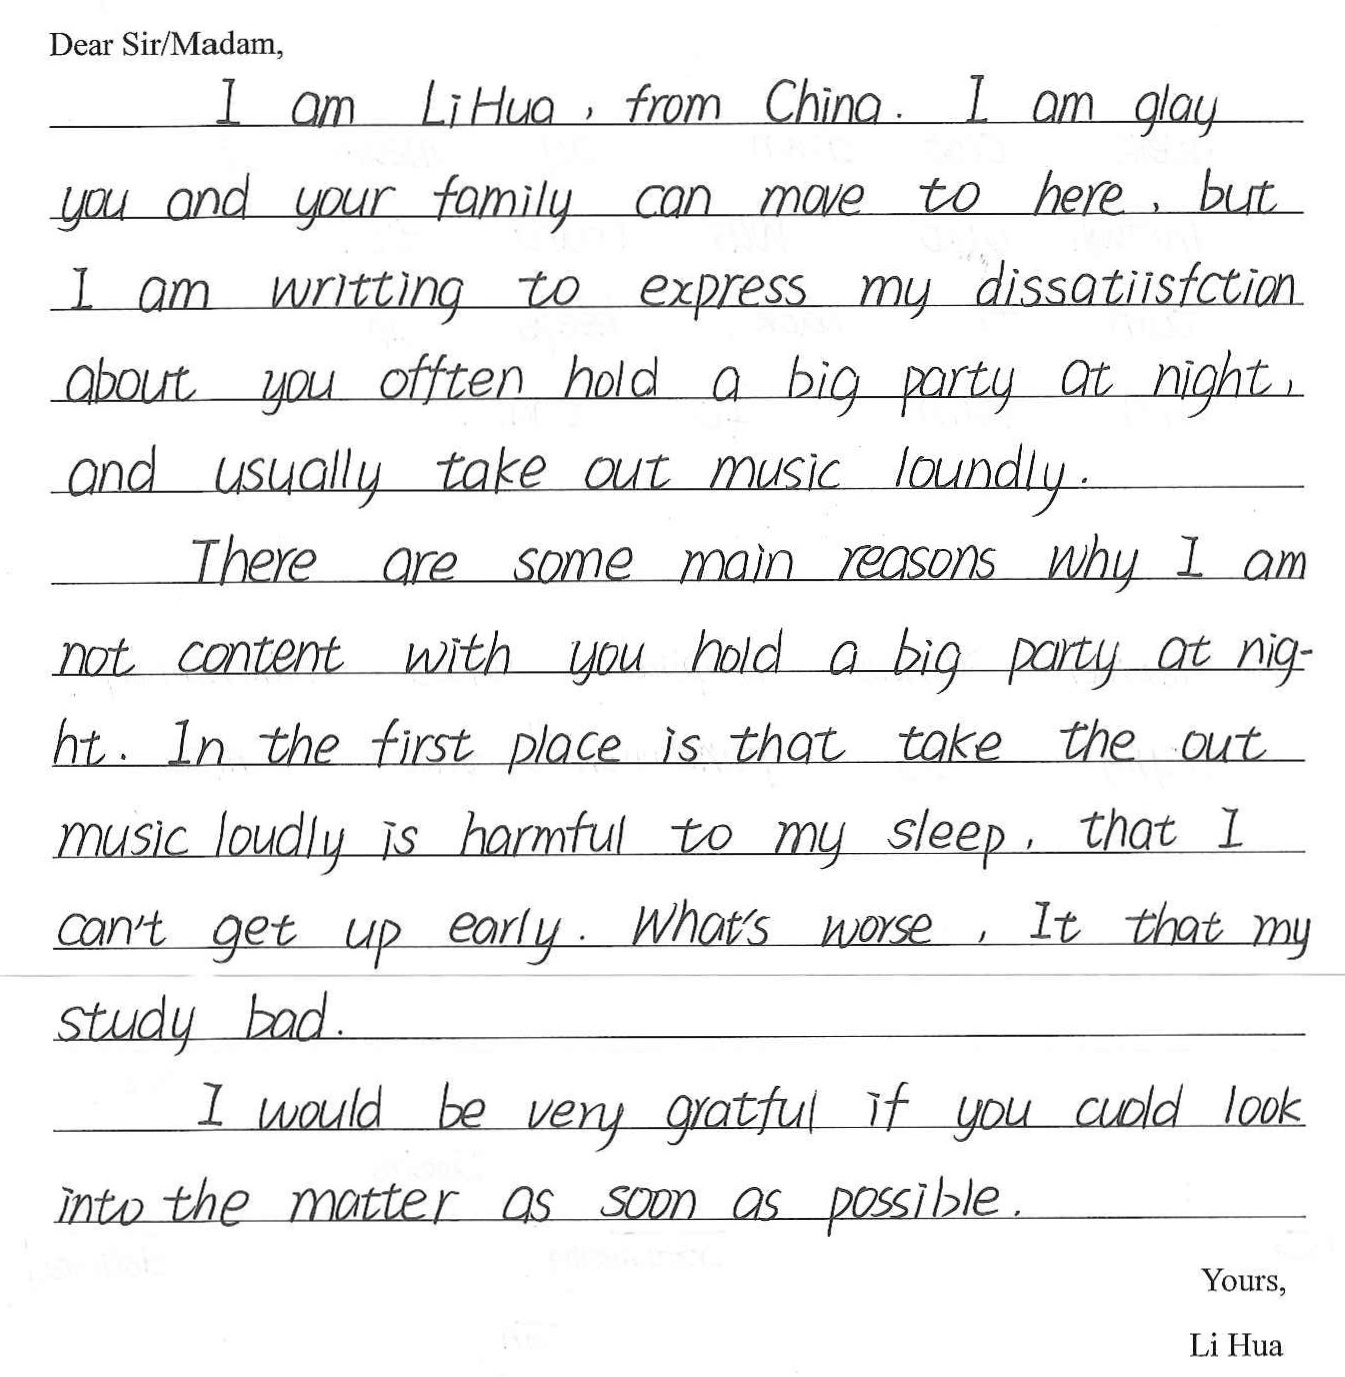 Dear Sir/Madam,
I am Li Hua, from China. I am glay
you and your family can move to here, but
I am writting to express my dissatiisfction
about you offten hold a big party at night,
and usually take out music loundly.
There are some main reasons why I am
not content with you hold a big party at nig-
ht. In the first place is that take the out
music loudly is harmful to my sleep, that I
can't get up early. What's worse, It that my
study bad.
I would be very gratful if you cuold look
into the matter as soon as possible.
Yours,
Li Hua